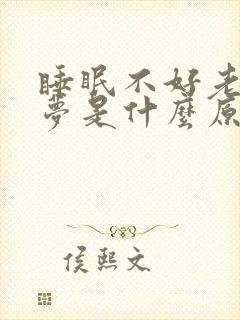 睡眠不好老
夢是什麼原
侯熙文